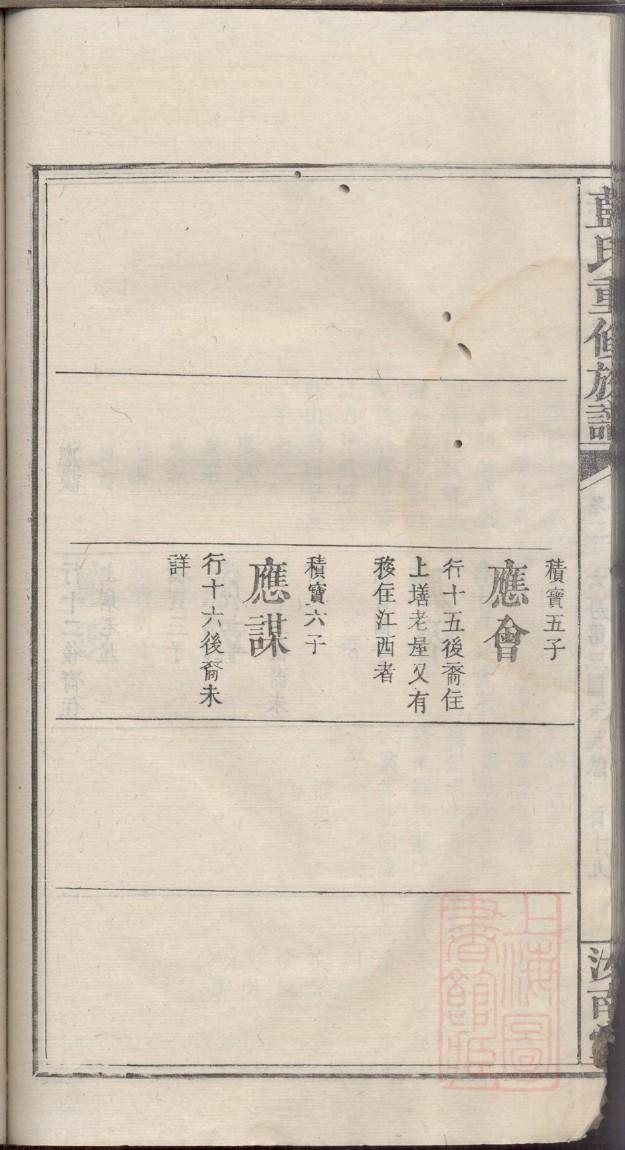 藍氏重修族譜
積寶五子
應會
行十五後裔住
上墡老屋又有
移住江西者
積寶六子
應謀
行十六後裔未
詳
汝南堂
上海圖
書館藏